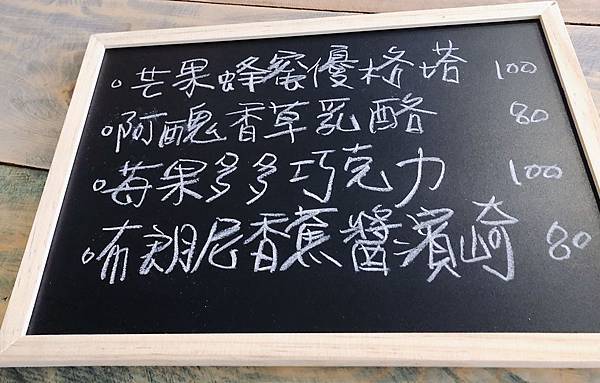 。芒果蜂蜜優格塔 100
。阿醜香草乳酪 80
。莓果多多巧克力 100
。布朗尼香蕉醬濱崎 80